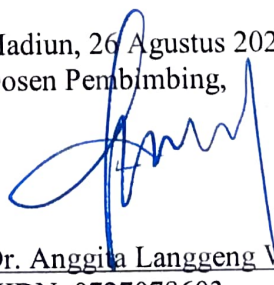 Madiun, 26 Agustus 202
Dosen Pembimbing,
Dr. Anggita Langgeng